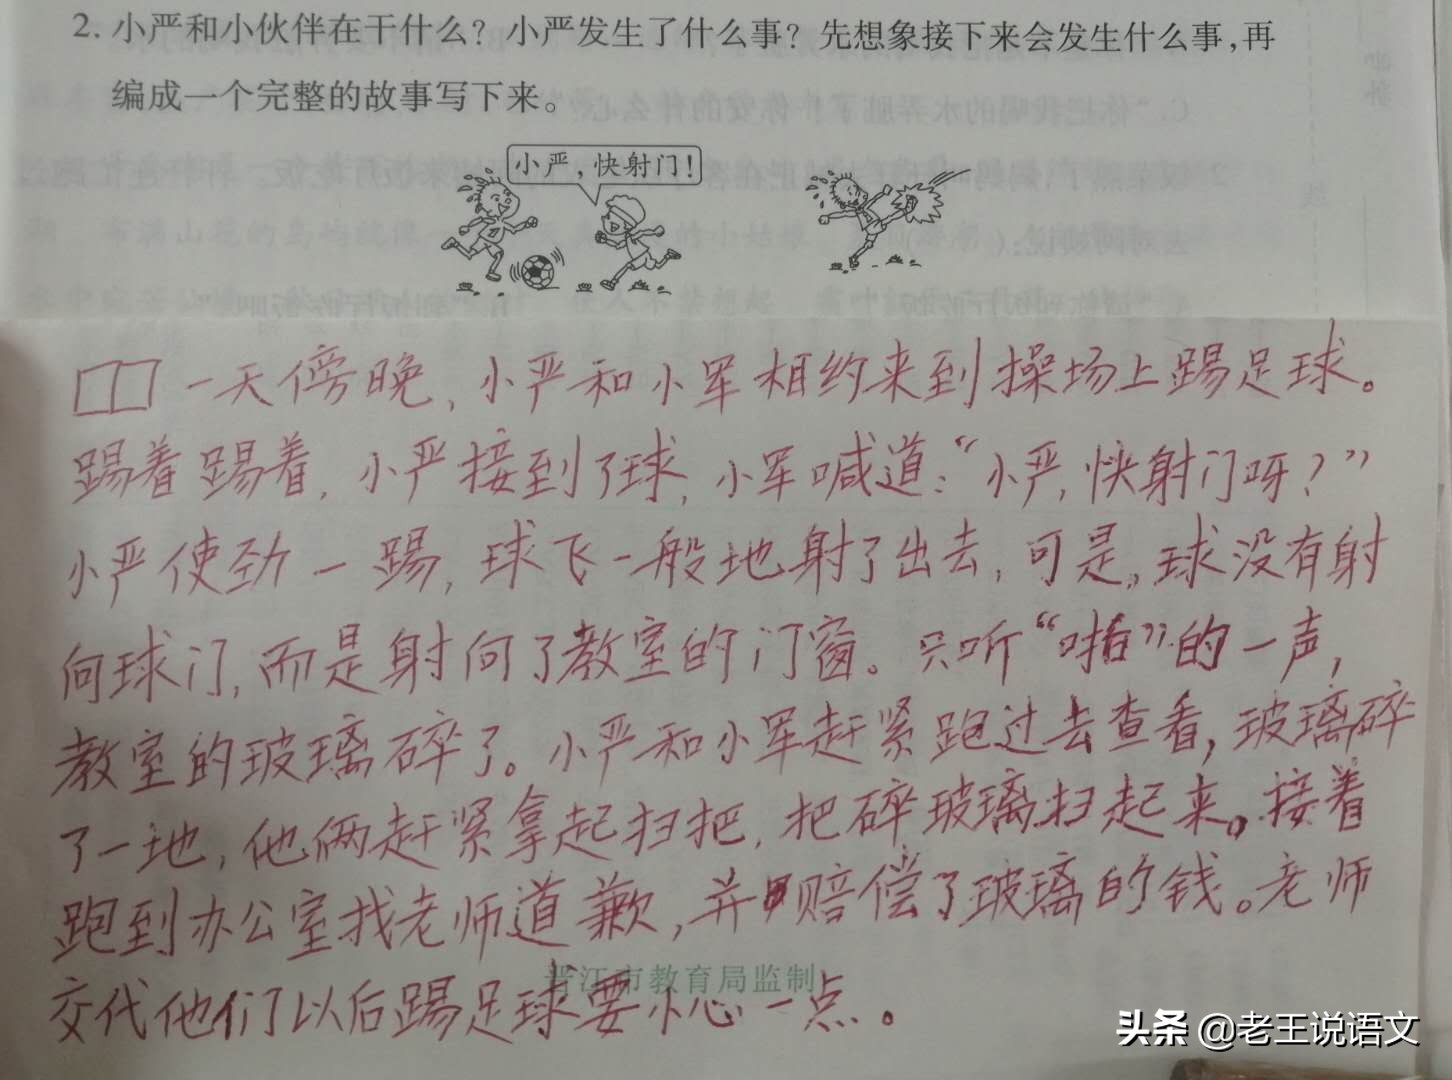 2. 小严和小伙伴在干什么？小严发生了什么事？先想象接下来会发生什么事，再
编成一个完整的故事写下来。
小严，快射门！
一天傍晚，小严和小军相约来到操场上踢足球。
踢着踢着，小严接到了球，小军喊道：“小严，快射门呀？”
小严使劲一踢，球飞一般地射了出去，可是，球没有射
向球门，而是射向了教室的门窗。只听“啪”的一声，
教室的玻璃碎了。小严和小军赶紧跑过去查看，玻璃碎
了一地，他俩赶紧拿起扫把，把碎玻璃扫起来。接着
跑到办公室找老师道歉，并赔偿了玻璃的钱。老师
交代他们以后踢足球要小心一点。
晋江市教育局监制
头条 @老王说语文